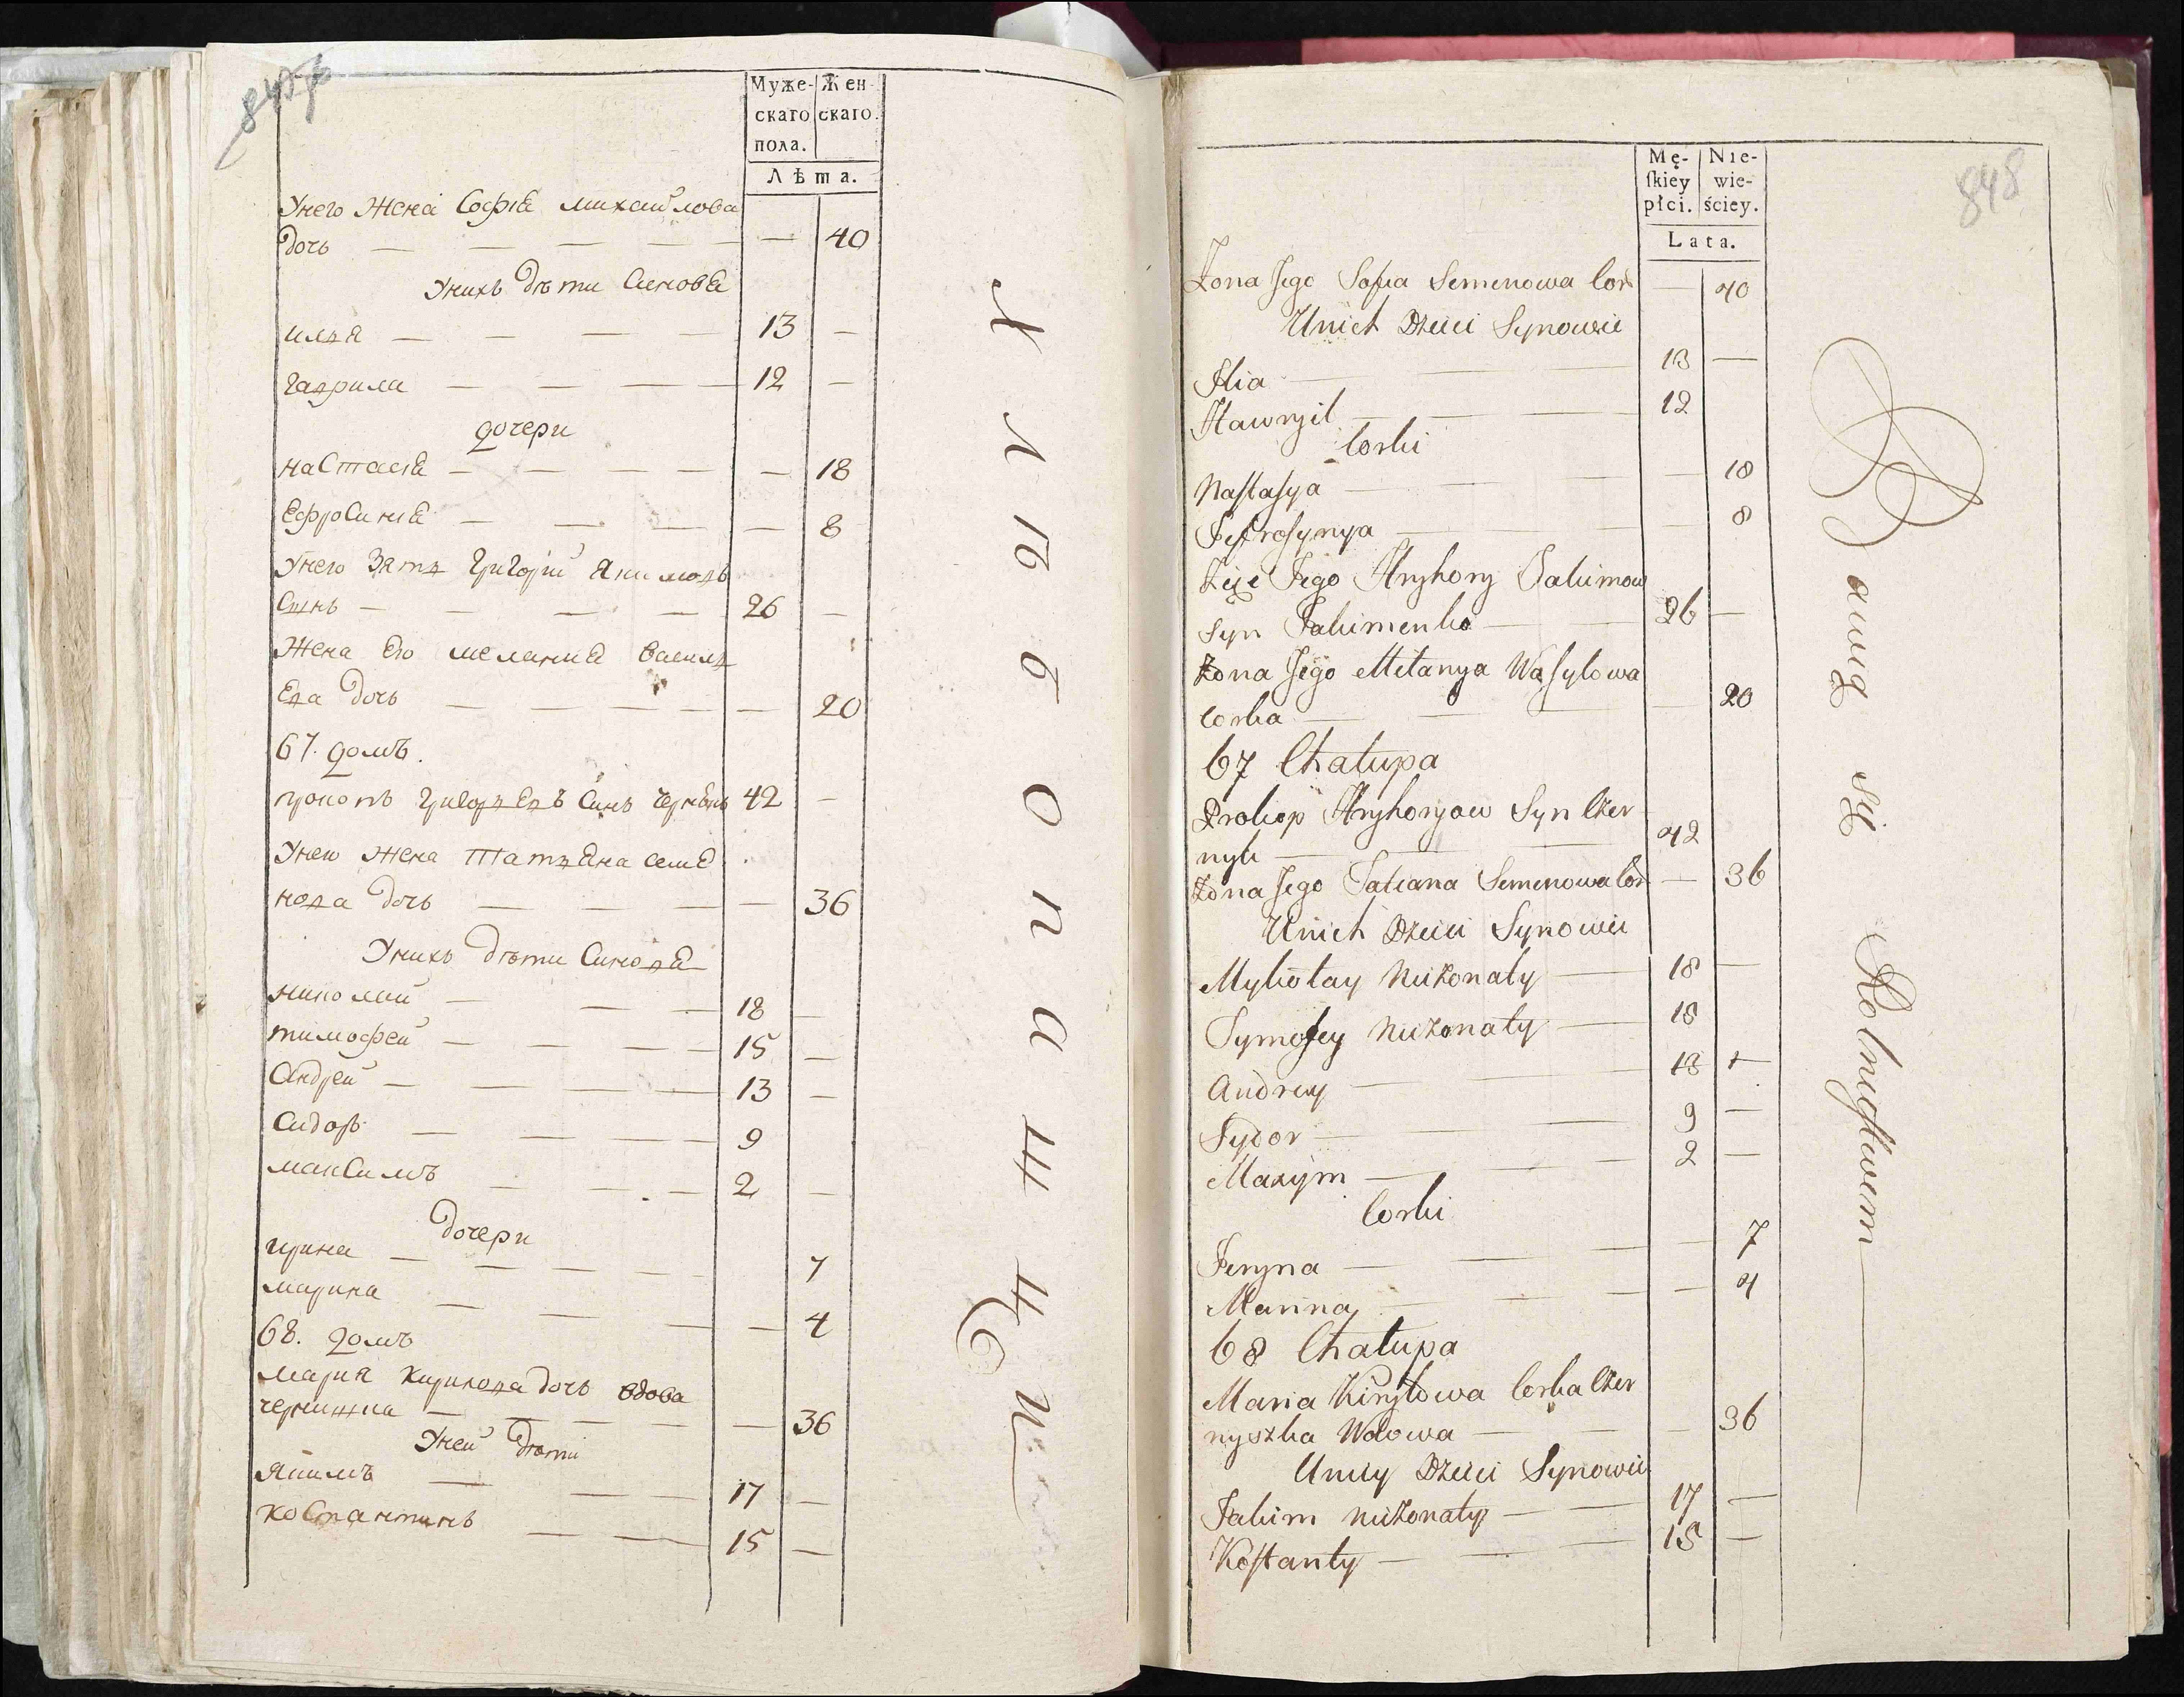 Муже- Жен-
скаго скаго.
пола.
Лѣта.
Унего Жена Софиа михайлова
Дочь — — — — — — 40
Унихъ Дѣти Синовѣ
илья — — — — 13 —
гаврила — — — — 12 —
дочери
наСтасіа — — — — — 18
ЕфроСиніа — — — — 8
Унего Зять Григорій Якимовъ
Синъ — — — — 26 —
Жена Его меланиа василь
Ева Дочь — — — — — 20
67. домъ.
прокопъ Григорьевъ Синъ чернѣнъ 42 —
Унего Жена Татьяна семе
нова Дочь — — — — 36
Унихъ Дѣти Синовѣ
николай — — — 18 —
тимофей — — — — 15 —
Андрей — — — — 13 —
Сидоръ — — — — 9
макСимъ — — — — 2 —
Дочери
ирина — — — — — 7
марина — — — — 4
68. домъ
мария Кирилова Дочь вдова
чернишка — — — — — 36
Уней Дѣти
Якимъ — — — 17 —
КоСтантинъ — — 15 —
Хлѣбопашцы
848
Mę- Nie-
ſkiey wie-
płci. ściey.
Lata.
Żona Jego Sofia Semenowa Cor — 40
Unich Dzieci Synowie
Ilia — — — 13 —
Hawryil — — — 12
Corki
Naſtaſya — — — — 18
Jefroſynya — — — 8
Zięć Jego Hryhory Jakimow
Syn Jakimenko — — 26 —
Żona Jego Melanya Waſylowa
Corka — — — — 20
67 Chałupa
Prokop Hryhoryow Syn Czer
nyk — — — 42
Żona Jego Tatiana Semenowa Cor — 36
Unich Dzieci Synowie
Mykołay Nieżonaty — 18 —
Tymofey Nieżonaty — 15
Andrey — — — 13 —
Sydor — — — 9 —
Maxym — — — 2 —
Corki
Jeryna — — — — 7
Marina — — — — 4
68 Chałupa
Maria Kiryłowa Corka Czer
nyszka Wdowa — — — 36
Uniey Dzieci Synowie
Jakim nieżonaty — — 17 —
Koſtanty — — — 15 —
Bawią się Rolnictwem